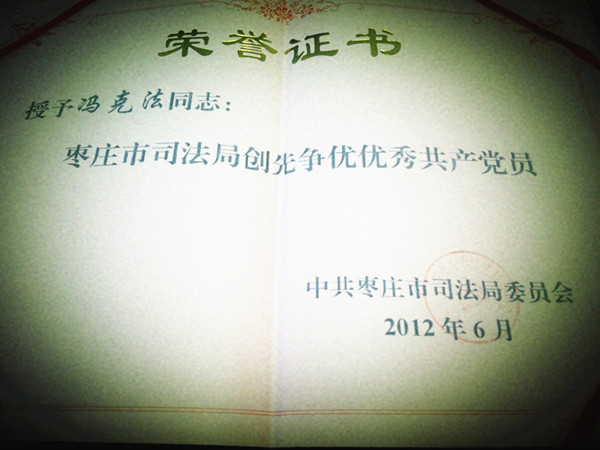 荣誉证书
授予冯克法同志：
枣庄市司法局创先争优优秀共产党员
中共枣庄市司法局委员会
2012年6月